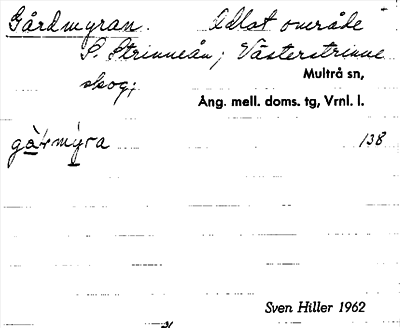 Gårdmyran. Ödlat område
S. Strinneån; Västerstrinne
skog;
Multrå sn,
Ång. mell. doms. tg, Vrnl. l.
gàrmýra 138
Sven Hiller 1962